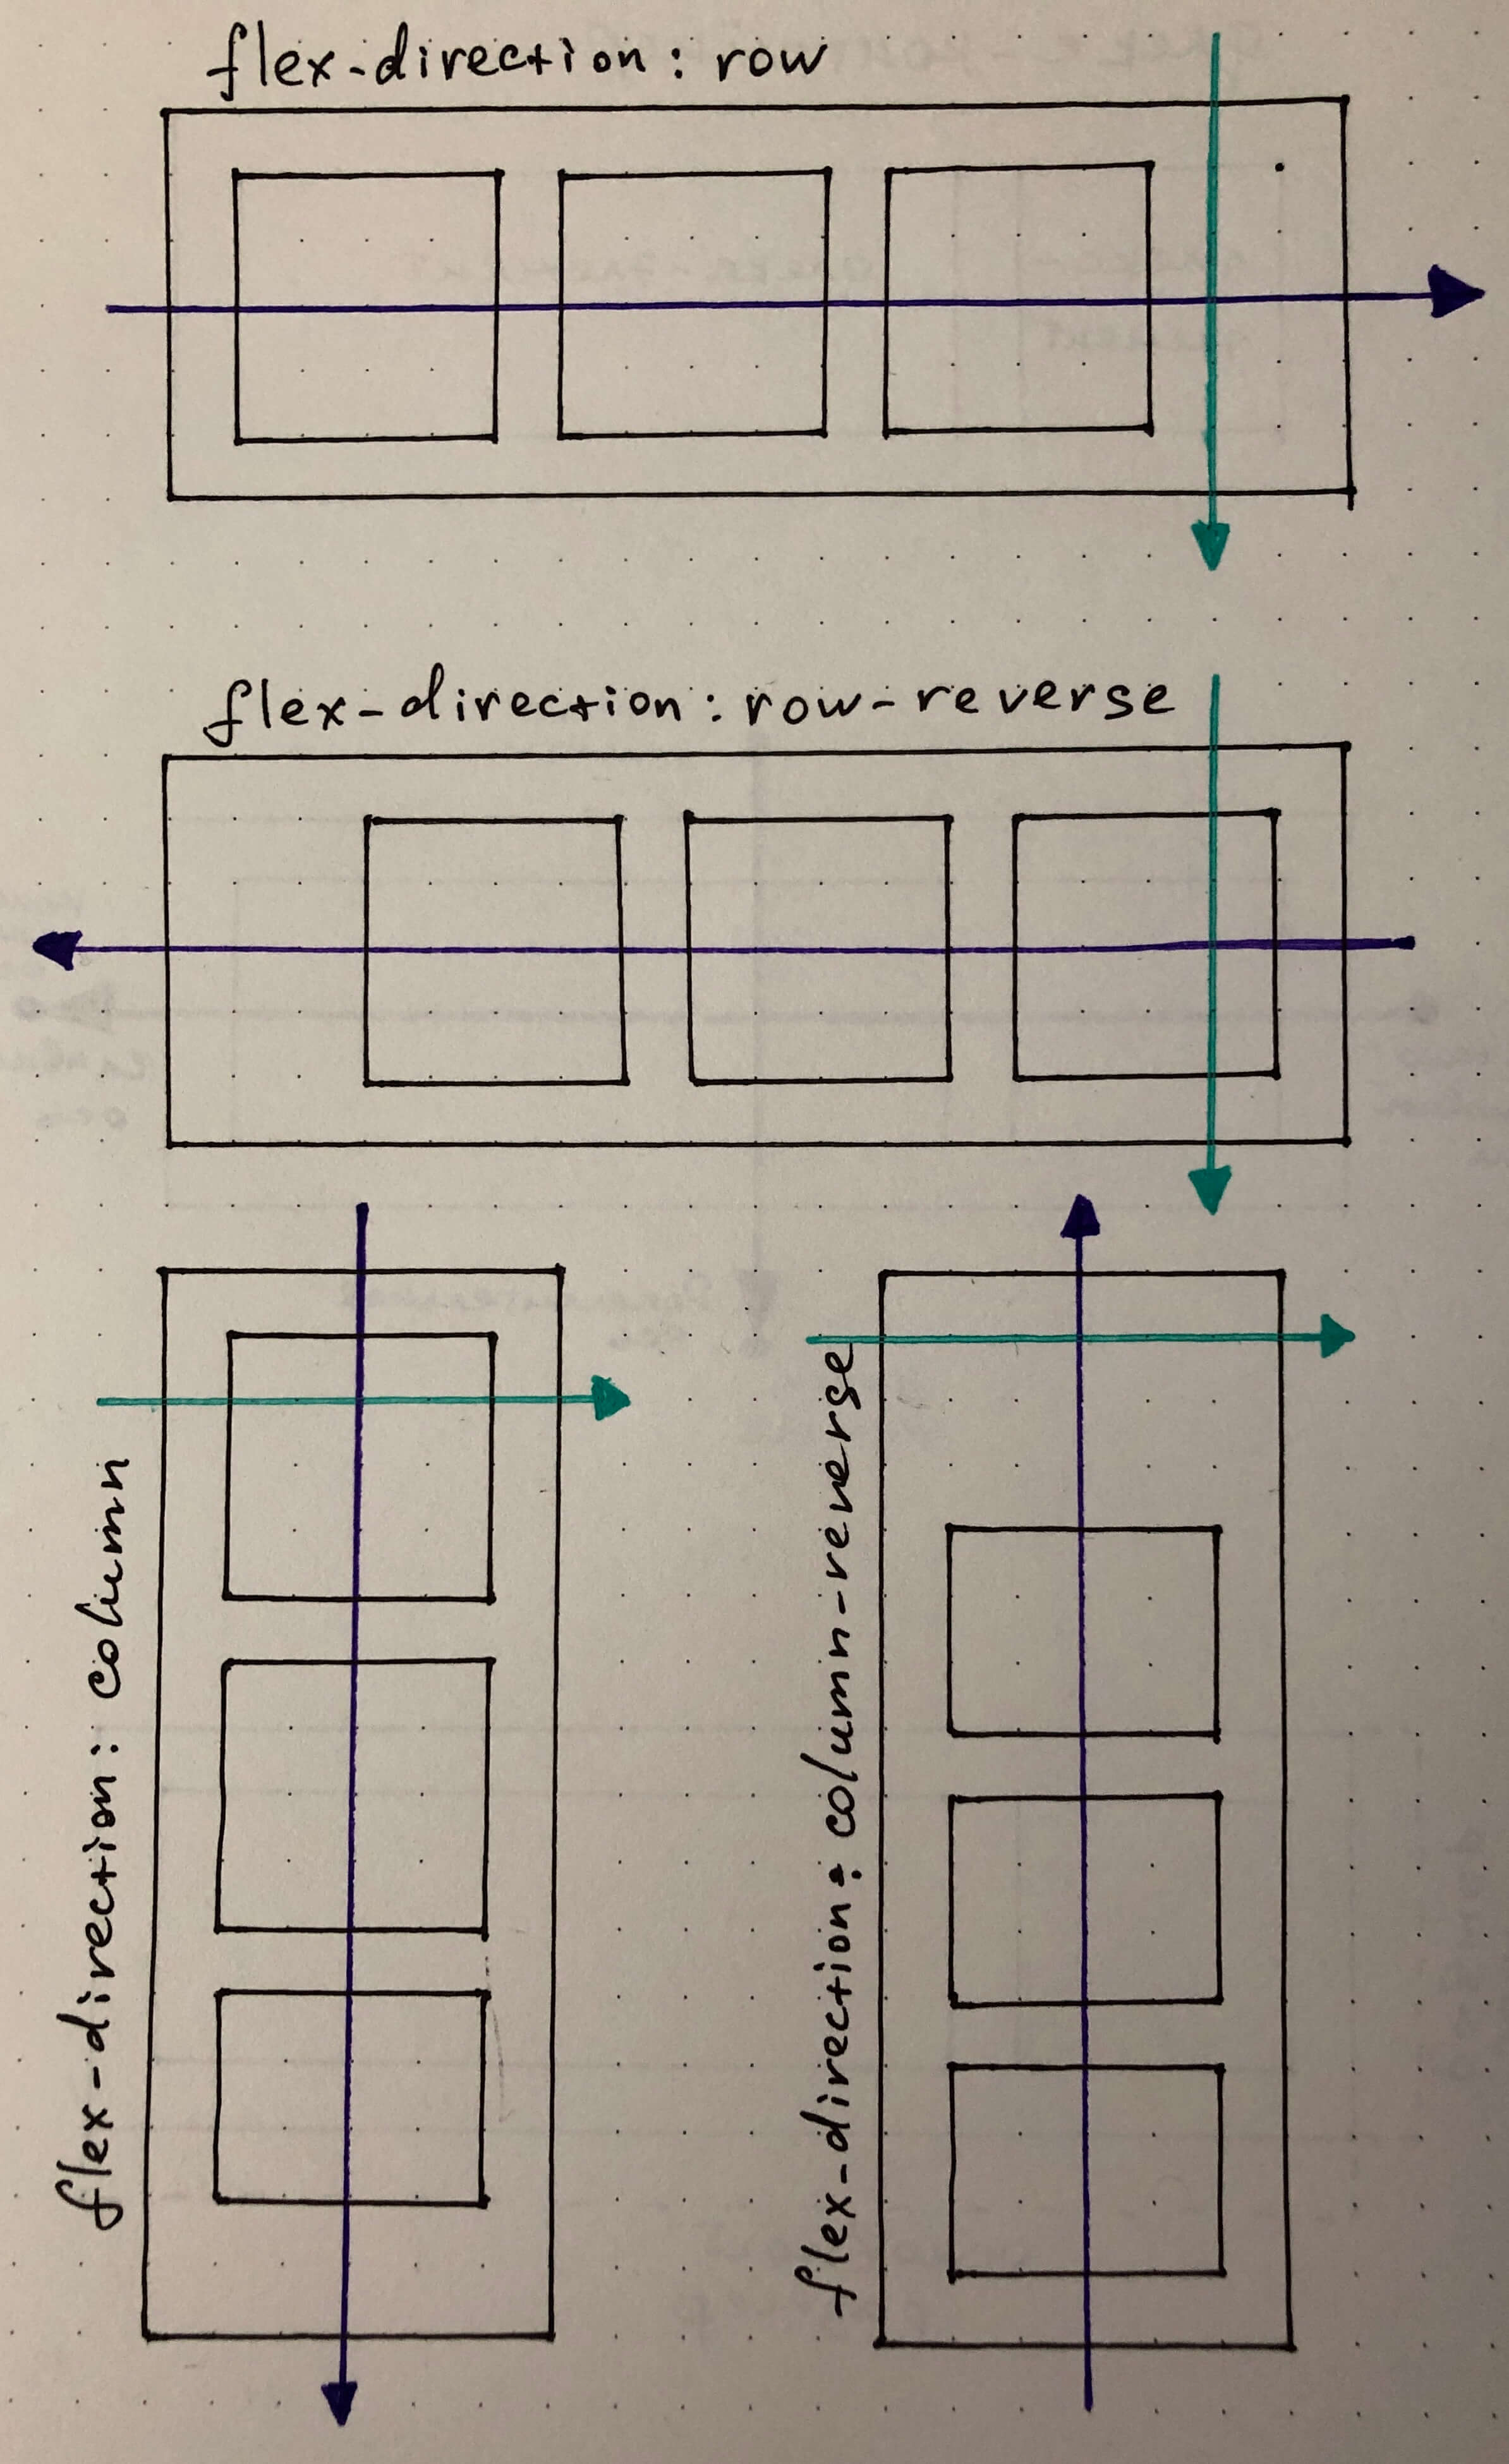 flex-direction: row
flex-direction: row-reverse
flex-direction: column
flex-direction: column-reverse